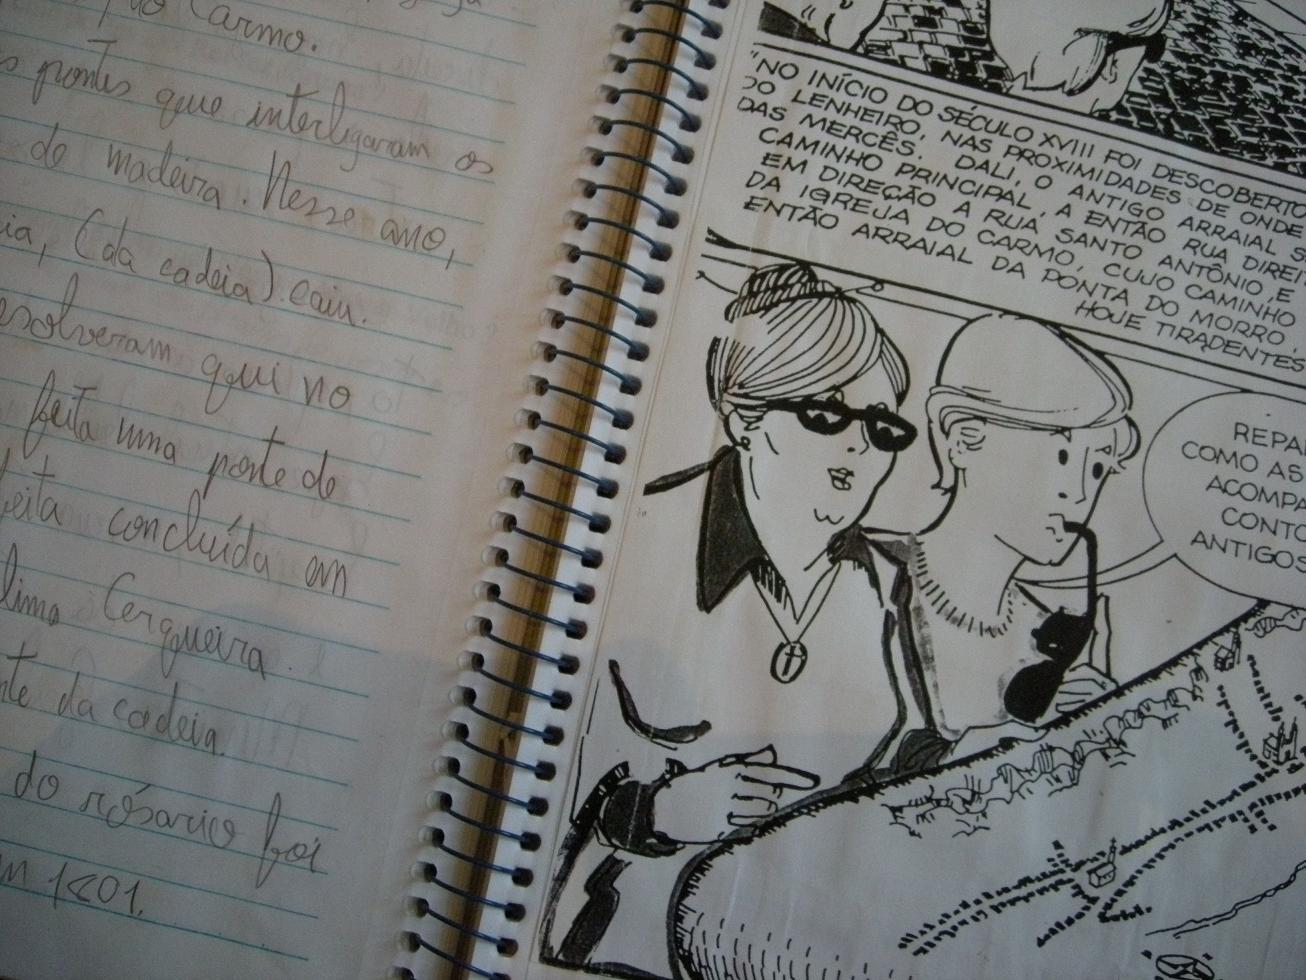 do Carmo.
s pontes que interligaram os
de madeira. Nesse ano,
ia, (da cadeia) caiu.
esolveram qui no
feita uma ponte de
feita concluída em
lima Cerqueira.
nte da cadeia.
do rósario foi
m 1801.
"NO INÍCIO DO SÉCULO XVIII FOI DESCOBERTO
DO LENHEIRO, NAS PROXIMIDADES DE ONDE
DAS MERCÊS. DALI, O ANTIGO ARRAIAL S
CAMINHO PRINCIPAL, A ENTÃO RUA DIREI
EM DIREÇÃO A RUA SANTO ANTÔNIO, E
DA IGREJA DO CARMO, CUJO CAMINHO
ENTÃO ARRAIAL DA PONTA DO MORRO,
HOJE TIRADENTES
REPA
COMO AS
ACOMPA
CONTO
ANTIGOS